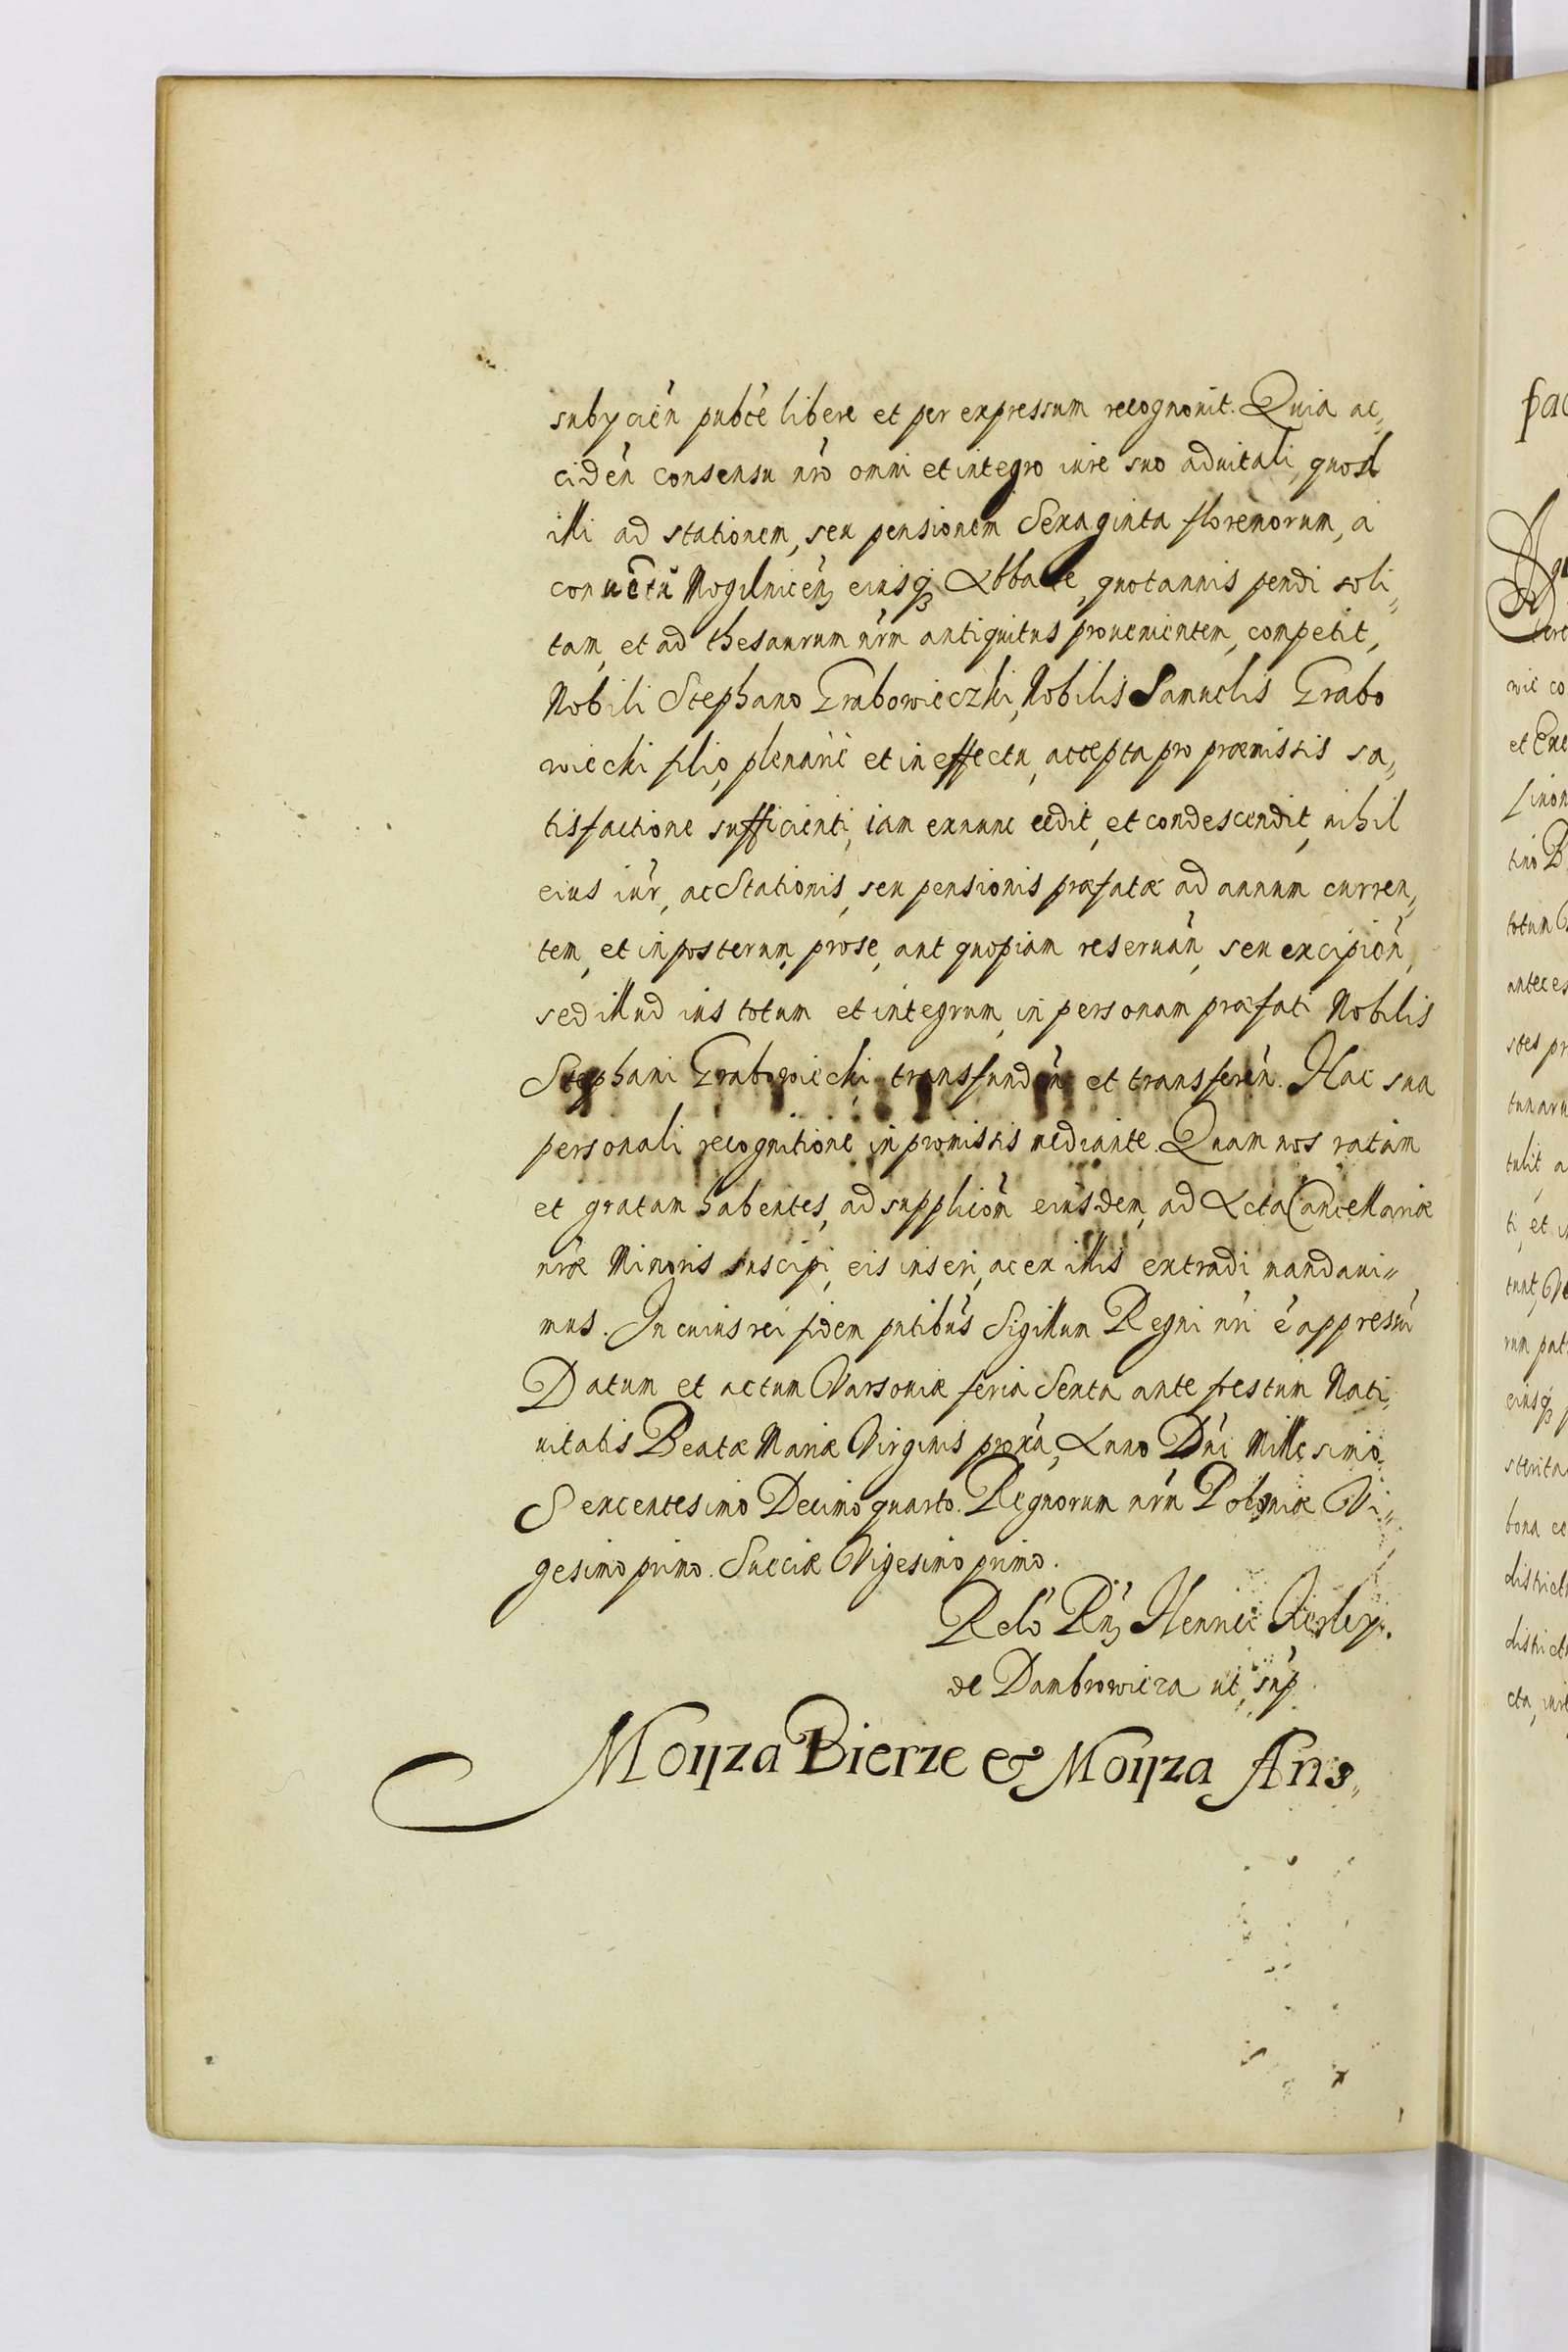 subycień publ̃e libere et per expressum recognouit. Quia ac„
cideń consensu nr̃o omni et integro iure suo aduitali, quod
illi ad stationem, seu pensionem Sexaginta florenorum, a
conuẽtu Mogilniceń eiusq̃ Abbate, quotannis pendi soli„
tam, et ad thesaurum nr̃m antiquitus prouenientem, competit,
Nobili Stephano Grabowieczki, Nobilis Samuelis Grabo
wiecki filio, plenarie et in effectu, accepta pro præmissis sa„
tisfactione sufficienti, iam exnunc cedit, et condescendit, nihil
eius iur̃, ac Stationis, seu pensionis præfatæ ad annum curren„
tem, et in posterum, pro se, aut quopiam reseruań, seu excipioń,
sed illud ius totum et integrum, in personam præfati Nobilis
Stephani Grabowiecki transfundeń et transfereń. Hac sua
personali recognitione in præmissis mediante. Quam nos ratam
et gratam habentes, ad supplicioń eiusdem, ad Acta Cancellariæ
nr̃æ Minoris suscipi, eis inseri, ac ex illis extradi mandaui„
mus. In cuius rei fidem pñtibus Sigillum Regni nr̃i ẽ appressũ
Datum et actum Varsouiæ feria Sexta ante festum Nati„
uitatis Beatæ Mariæ Virginis proxa, Anno Dñi Millesimo
Sexcentesimo Decimo quarto. Regnorum nr̃m Poloniæ Vi„
gesimo primo. Sueciæ Vigesimo primo.
Relõ Rñ Henric Firley.
de Dambrowicza ut sup̃.
Moyza Bierze & Moyza Ans„
pac
wic co
et Exe
tino B
totum
anteces
stes pr
tunaru
tulit, a
ti, et i
tunt, Ne
rum pat
eiusq̃ p
sterita
bona co
district
district
cta, iure